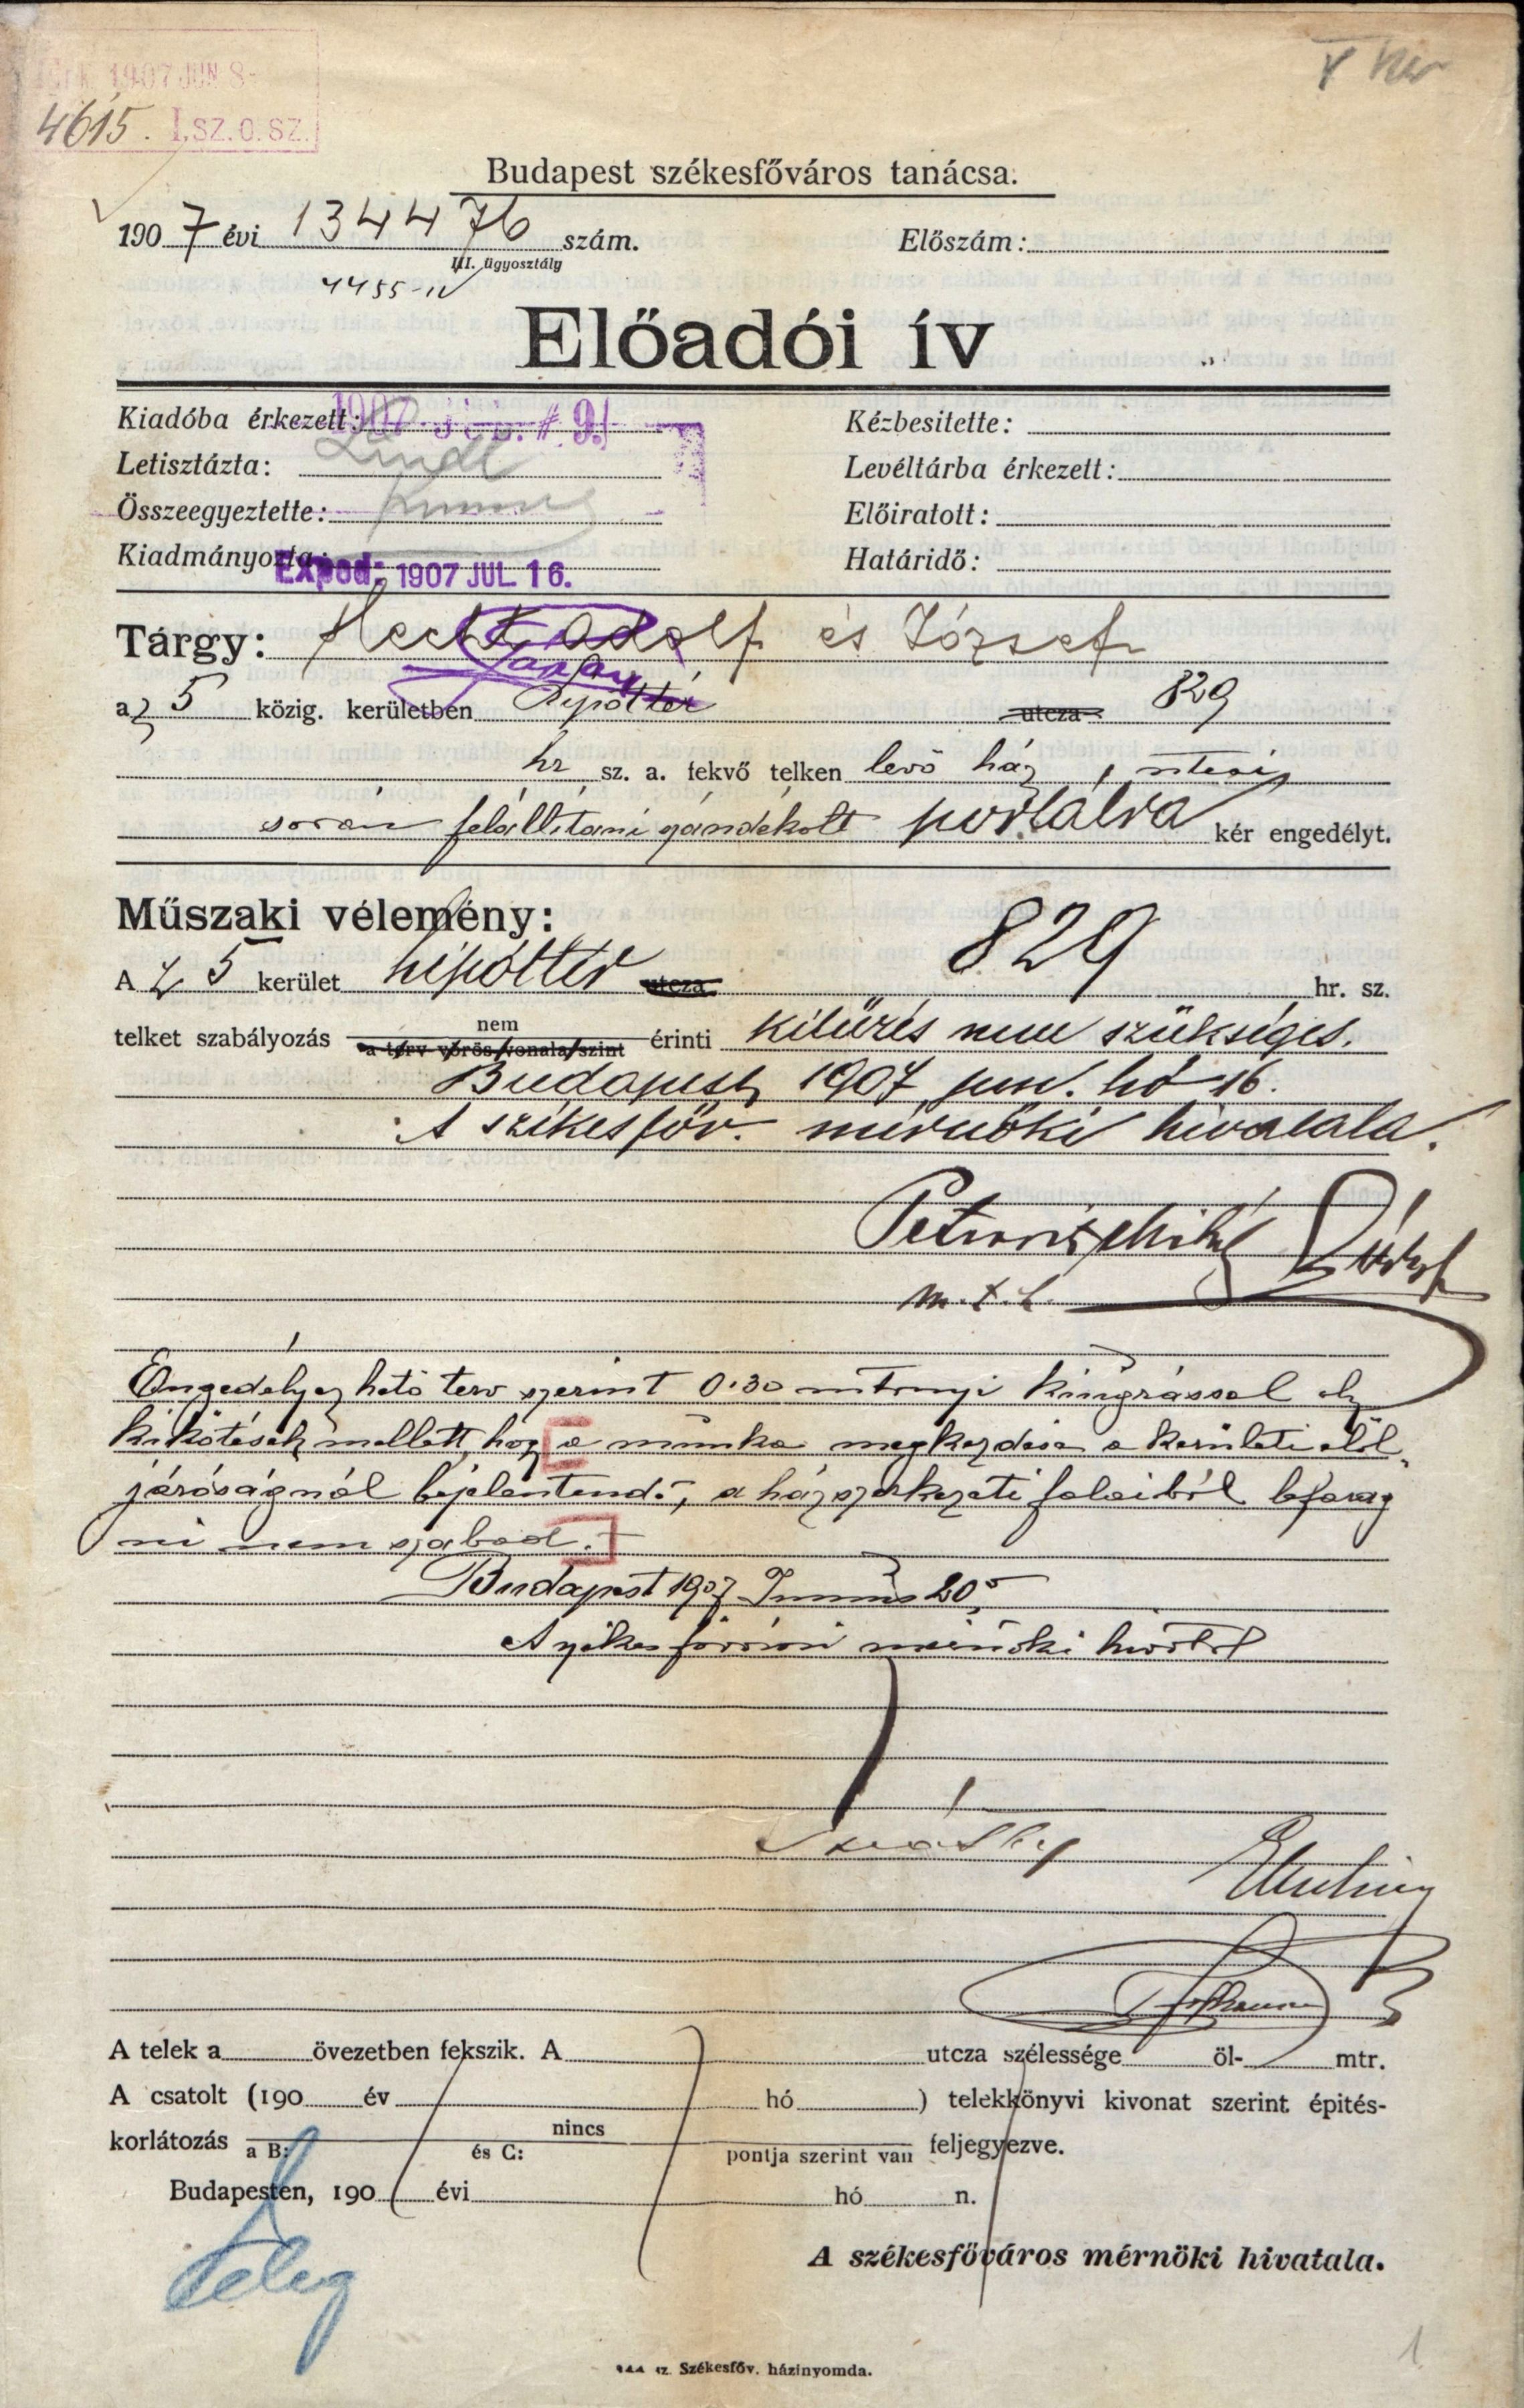 V ker
1907 JUN 8-
4615. I. SZ. O. SZ.
Budapest székesfőváros tanácsa.
1907 évi 134476 szám. Előszám:
III. ügyosztály
4455-IV
Előadói ív
Kiadóba érkezett: 1907 Kézbesitette:
Letisztázta: Levéltárba érkezett:
Összeegyeztette: Előiratott:
Kiadmányozta: Exped: 1907 JUL 16. Határidő:
Tárgy: Hecht Adolf és József
az 5 közig. kerületben Lipót tér utcza 829
hr sz. a. fekvő telken levő ház
során felállitani szándékolt portálra kér engedélyt.
Műszaki vélemény:
A z 5 kerület Lipóttér utcza 829 hr. sz.
telket szabályozás nem érinti kitüzés nem szükséges.
a terv vörös vonala szint
Budapest, 1907 jun. hó 16.
A székesfőv. mérnöki hivatala.
Engedélyezhető terv szerint 0.30 kiugrással oly
kikötések mellett, hogy a munka megkezdése a kerületi elöl
járóságnál bejelentendő, a ház szerkezeti falaiból lefarag
ni nem szabad.
Budapest 1907 Junius 20
A székesfővárosi mérnöki hivatal
A telek a övezetben fekszik. A utcza szélessége öl- mtr.
A csatolt (190 év hó ) telekkönyvi kivonat szerint épités-
korlátozás nincs feljegyezve.
a B: és C: pontja szerint van
Budapesten, 190 évi hó n.
A székesfőváros mérnöki hivatala.
sz. Székesföv. házinyomda.
1